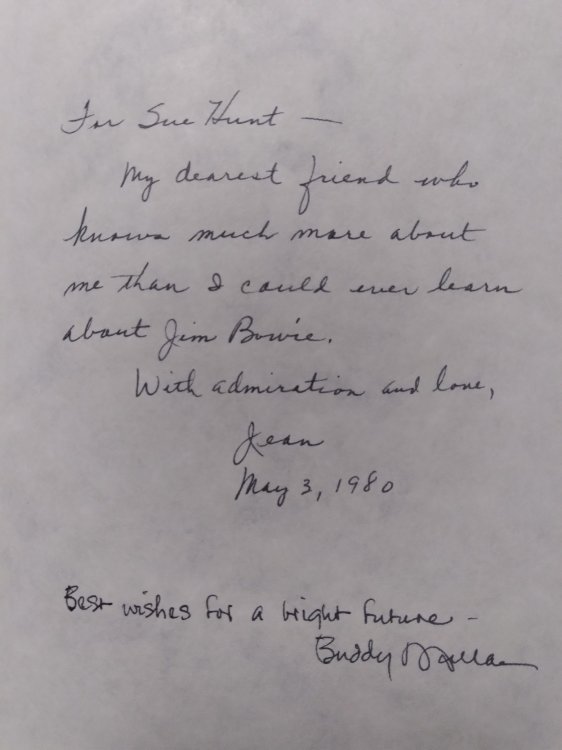 For Sue Hunt —
My dearest friend who
knows much more about
me than I could ever learn
about Jim Bowie.
With admiration and love,
Jean
May 3, 1980
Best wishes for a bright future -
Buddy